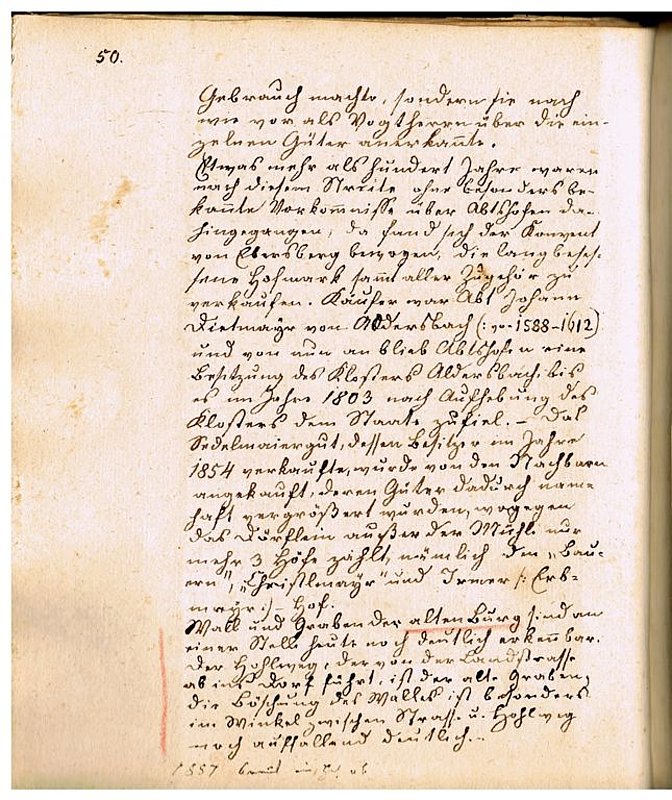 50.
Gebrauch machte, sondern sie nach
wie vor als Vogtherrn über die ein-
zelnen Güter anerkannte.
Etwas mehr als hundert Jahre waren
nach diesem Streite ohne besonders be-
kannte Vorkom̅nisse über Abtshofen da-
hingegangen, da fand sich der Konvent
von Ebersberg bewogen, die langbeses-
sene Hofmark sam̅t aller Zugehör zu
verkaufen. Käufer war Abt Johann
Dietmayr von Aldersbach (: 1588-1612)
und von nun an blieb Abtshofen eine
Besitzung des Klosters Aldersbach bis
es im Jahre 1803 nach Aufhebung des
Klosters dem Staate zufiel. - Das
Sedelmaiergut, dessen Besitzer im Jahre
1854 verkaufte, wurde von den Nachbarn
angekauft, deren Güter dadurch nam-
haft vergrößert wurden, wogegen
das Dörflein außer der Mühle nur
mehr 3 Höfe zählt, nämlich den „Bau-
ern", „Christlmayr" und Irmer /: Erb-
mayr :/- Hof.
Wall und Graben der alten Burg sind an
einer Stelle heute noch deutlich erkennbar.
Der Hohlweg, der von der Landstrasse
ab ins Dorf führt, ist der alte Graben;
die Böschung des Walles ist besonders
im Winkel zwischen Strasse u. Hohlweg
noch auffallend deutlich.-
1887